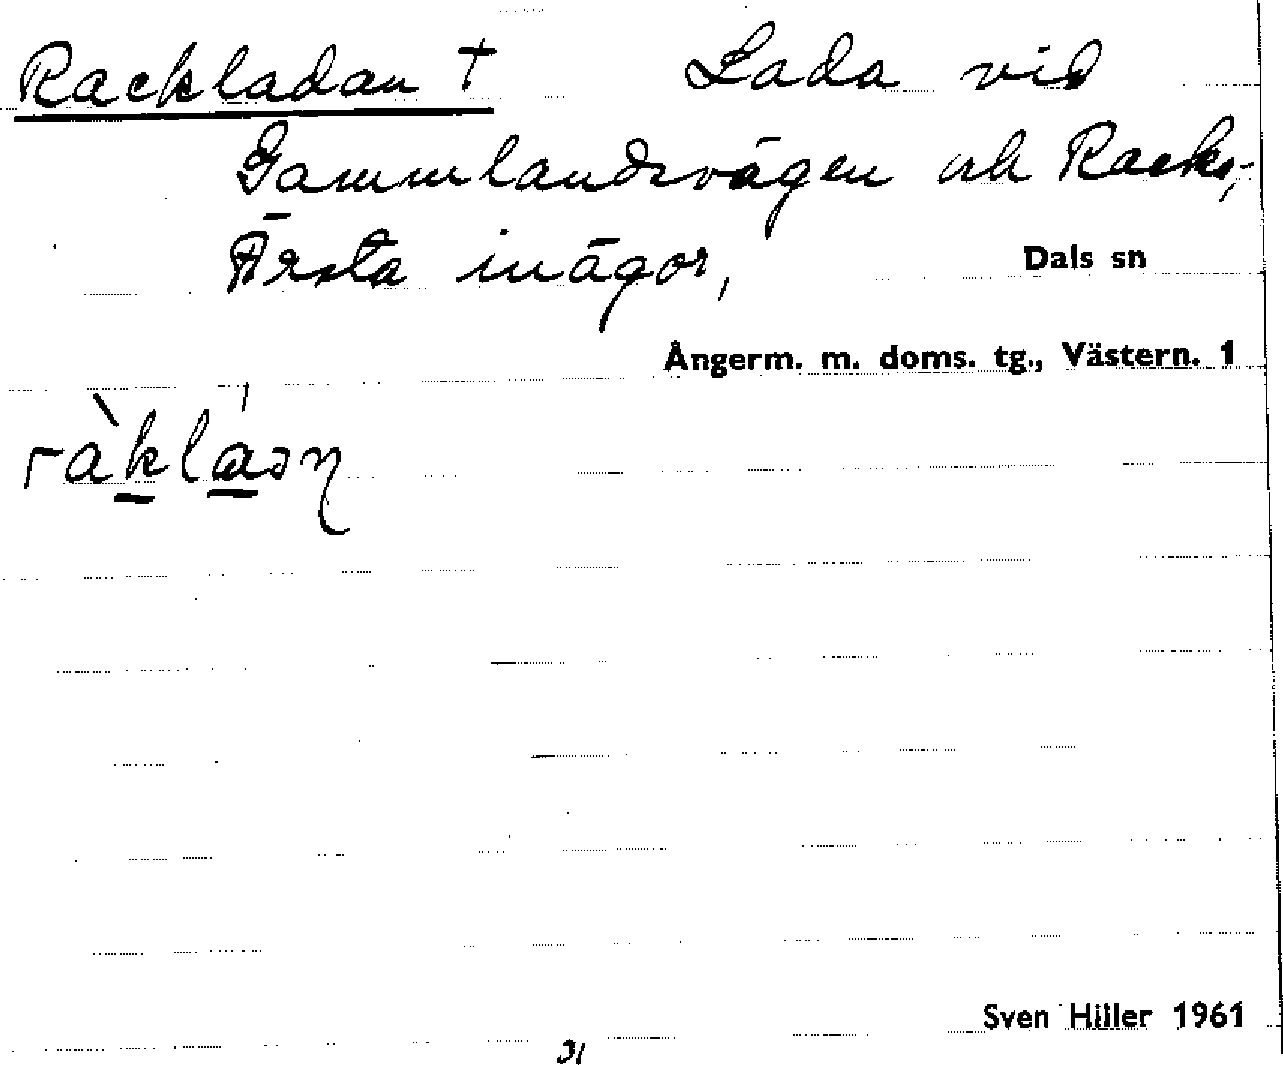 Rackladan † Lada vid
Gammlandsvägen och Racks,-
Ärsta inägor,
Dals sn
Ångerm. m. doms. tg., Västern. 1
Sven Hiller 1961
31